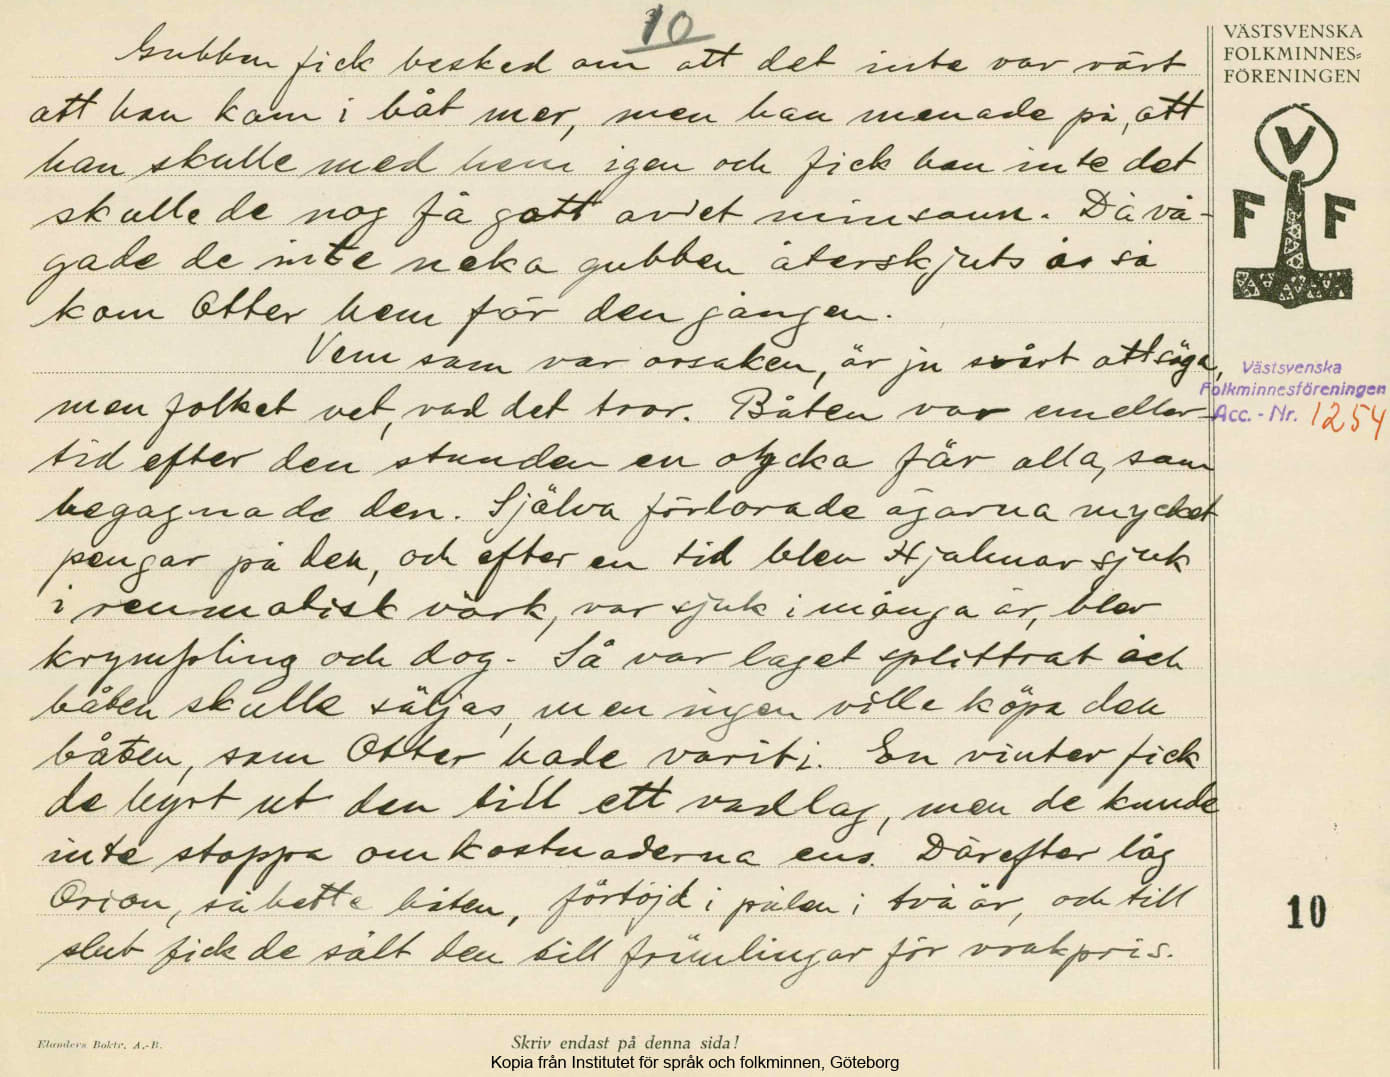 10
Gubben fick besked om att det inte var värt
att han kom i båt mer, men han menade på, att
han skulle med hem igen och fick han inte det
skulle de nog få gott av det minsann. Då vå-
gade de inte neka gubben återskjuts ås så
kom Otter hem för den gången.
Vem som var orsaken, är ju svårt att säga,
men folket vet, vad det tror. Båten var emeller-
tid efter den stunden en olycka för alla, som
begagnade den. Själva förlorade ägarna mycket
pengar på den, och efter en tid blev Hjalmar sjuk
i reumatisk värk, var sjuk i många år, blev
krympling och dog. Så var laget splittrat och
båten skulle säljas, men ingen ville köpa den
båten, som Otter hade varit i. En vinter fick
de hyrt ut den till ett vadlag, men de kunde
inte stoppa omkostnaderna ens. Därefter låg
Orion, så hette båten, förtöjd i pålen i två år, och till
slut fick de sålt den till främlingar för vrakpris.
VÄSTSVENSKA
FOLKMINNES=
FÖRENINGEN
V
F F
Västsvenska
Folkminnesföreningen
Acc. - Nr. 1254
10
Elanders Boktr. A.-B.
Skriv endast på denna sida!
Kopia från Institutet för språk och folkminnen, Göteborg